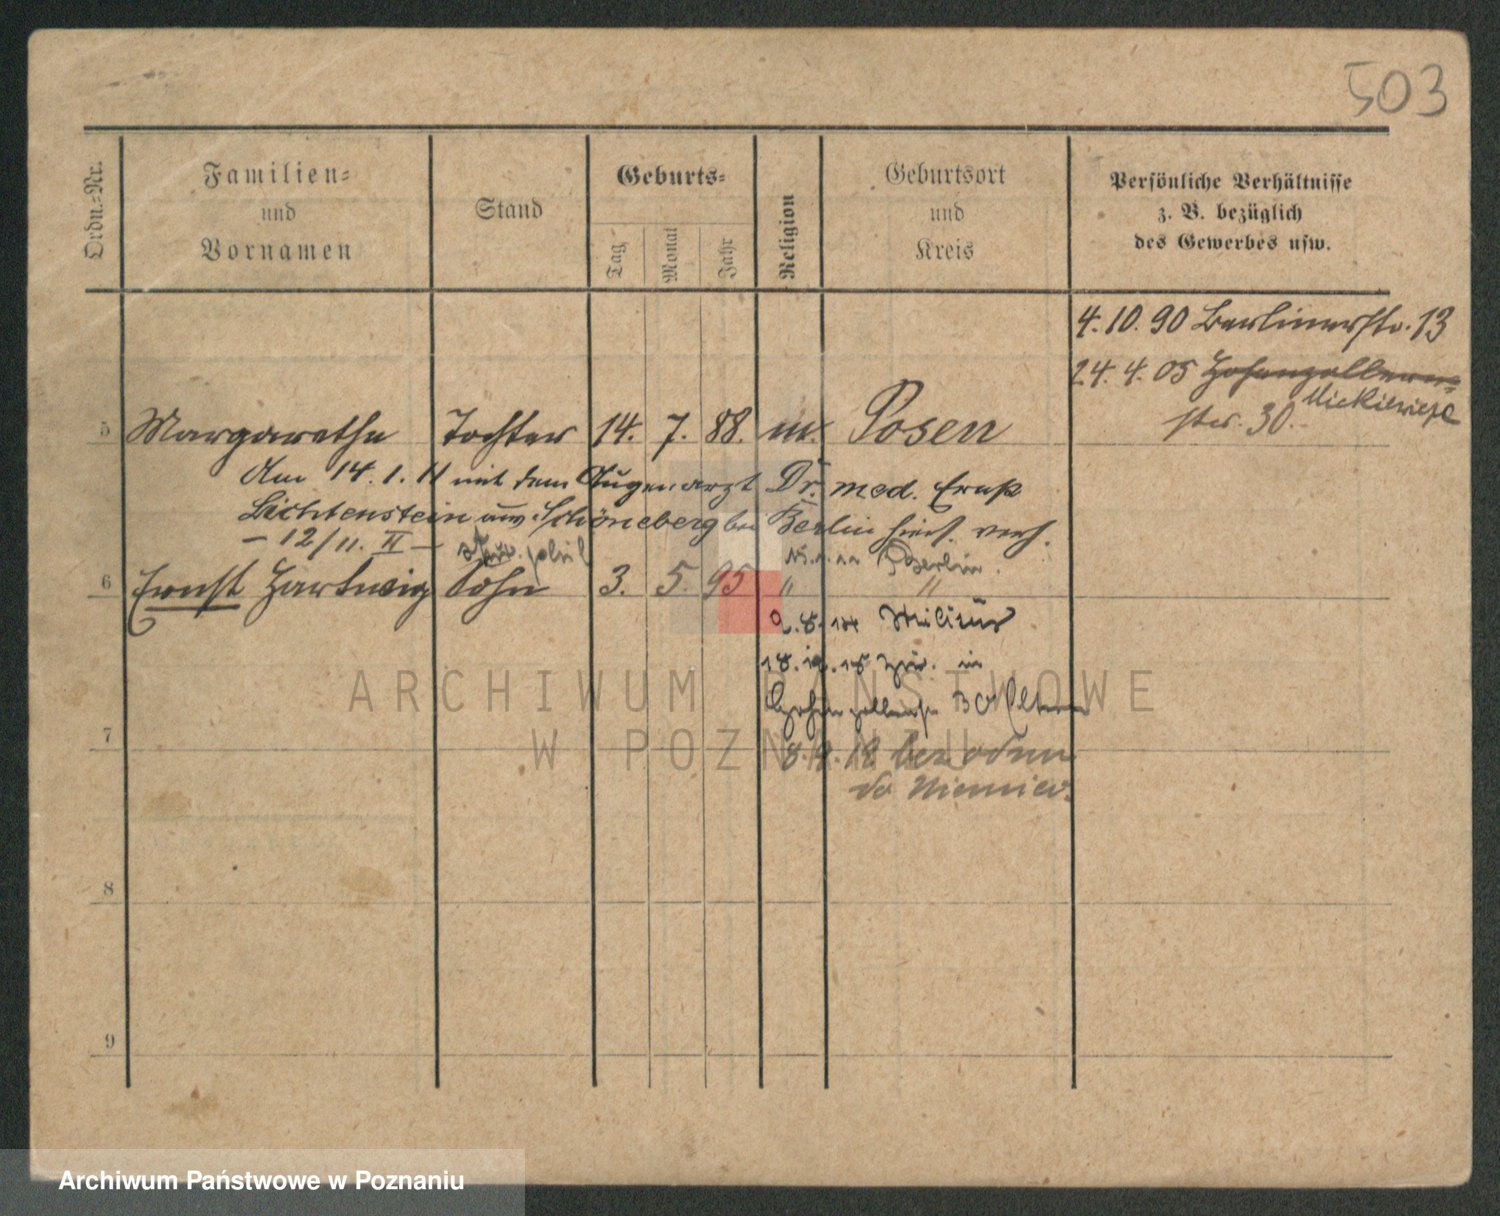 503
Ordn.-Nr.
Familien=
und
Vornamen
Stand
Geburts=
Tag
Monat
Jahr
Religion
Geburtsort
und
Kreis
Persönliche Verhältnisse
z. B. bezüglich
des Gewerbes usw.
4. 10. 90 Berlinerstr. 13
24. 4. 05 Hohenzollern=
Mickiewicza
str. 30.
5 Margarethe Tochter 14. 7. 88. m. Posen
Am 14. 1. 11 mit dem Augenarzt Dr. med. Ernst
Lichtenstein aus Schöneberg bei Berlin hies. verh.
- 12/11. II - phil
Berlin.
6 Ernst Hartwig Sohn 3. 5. 95 " "
2. 8. 14 Militär
18. 12. 18 zur. in
7 8. 4. 19. bez. odm.
do Niemiec.
8
9
ARCHIWUM PAŃSTWOWE
W POZNANIU
Archiwum Państwowe w Poznaniu